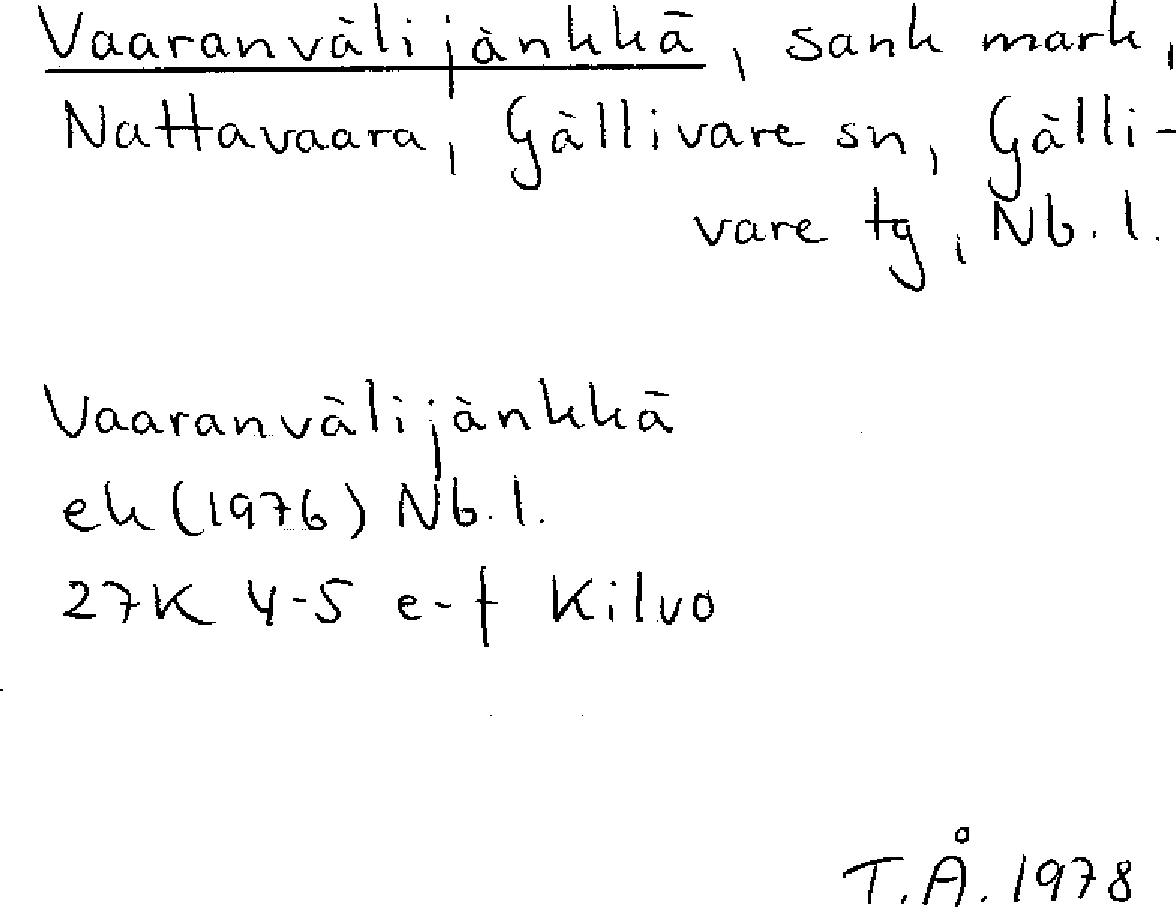 Vaaranvälijänkkä, sank mark,
Nattavaara, Gällivare sn, Gälli-
vare tg, Nb. l.
Vaaranvälijänkkä
ek (1976) Nb. l.
27K 4-5 e-f Kilvo
T.Å. 1978